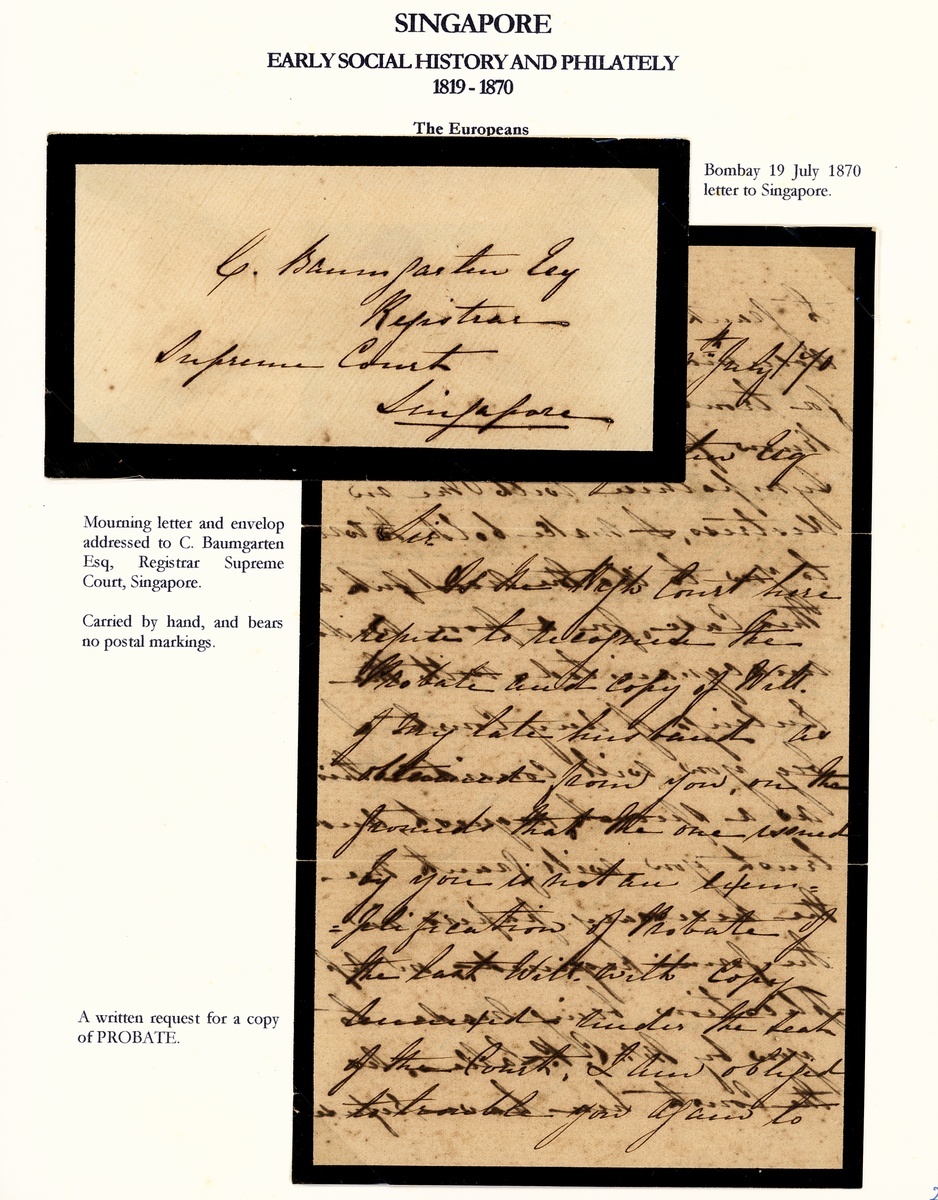 SINGAPORE
EARLY SOCIAL HISTORY AND PHILATELY
1819 - 1870
The Europeans
Bombay 19 July 1870
letter to Singapore.
C. Baumgarten Esq
Registrar
Supreme Court
Singapore
Mourning letter and envelop
addressed to C. Baumgarten
Esq, Registrar Supreme
Court, Singapore.
Carried by hand, and bears
no postal markings.
A written request for a copy
of PROBATE.
th July /70
ten Esq
Sir
As the High Court here
refuse to recognise the
Probate and copy of Will.
of my late husband as
obtained from you, on the
grounds that the one issued
by you is not an exem=
=plification of Probate of
the last Will. with copy
annexed under the seal
of the Court, I am obliged
to trouble you again to